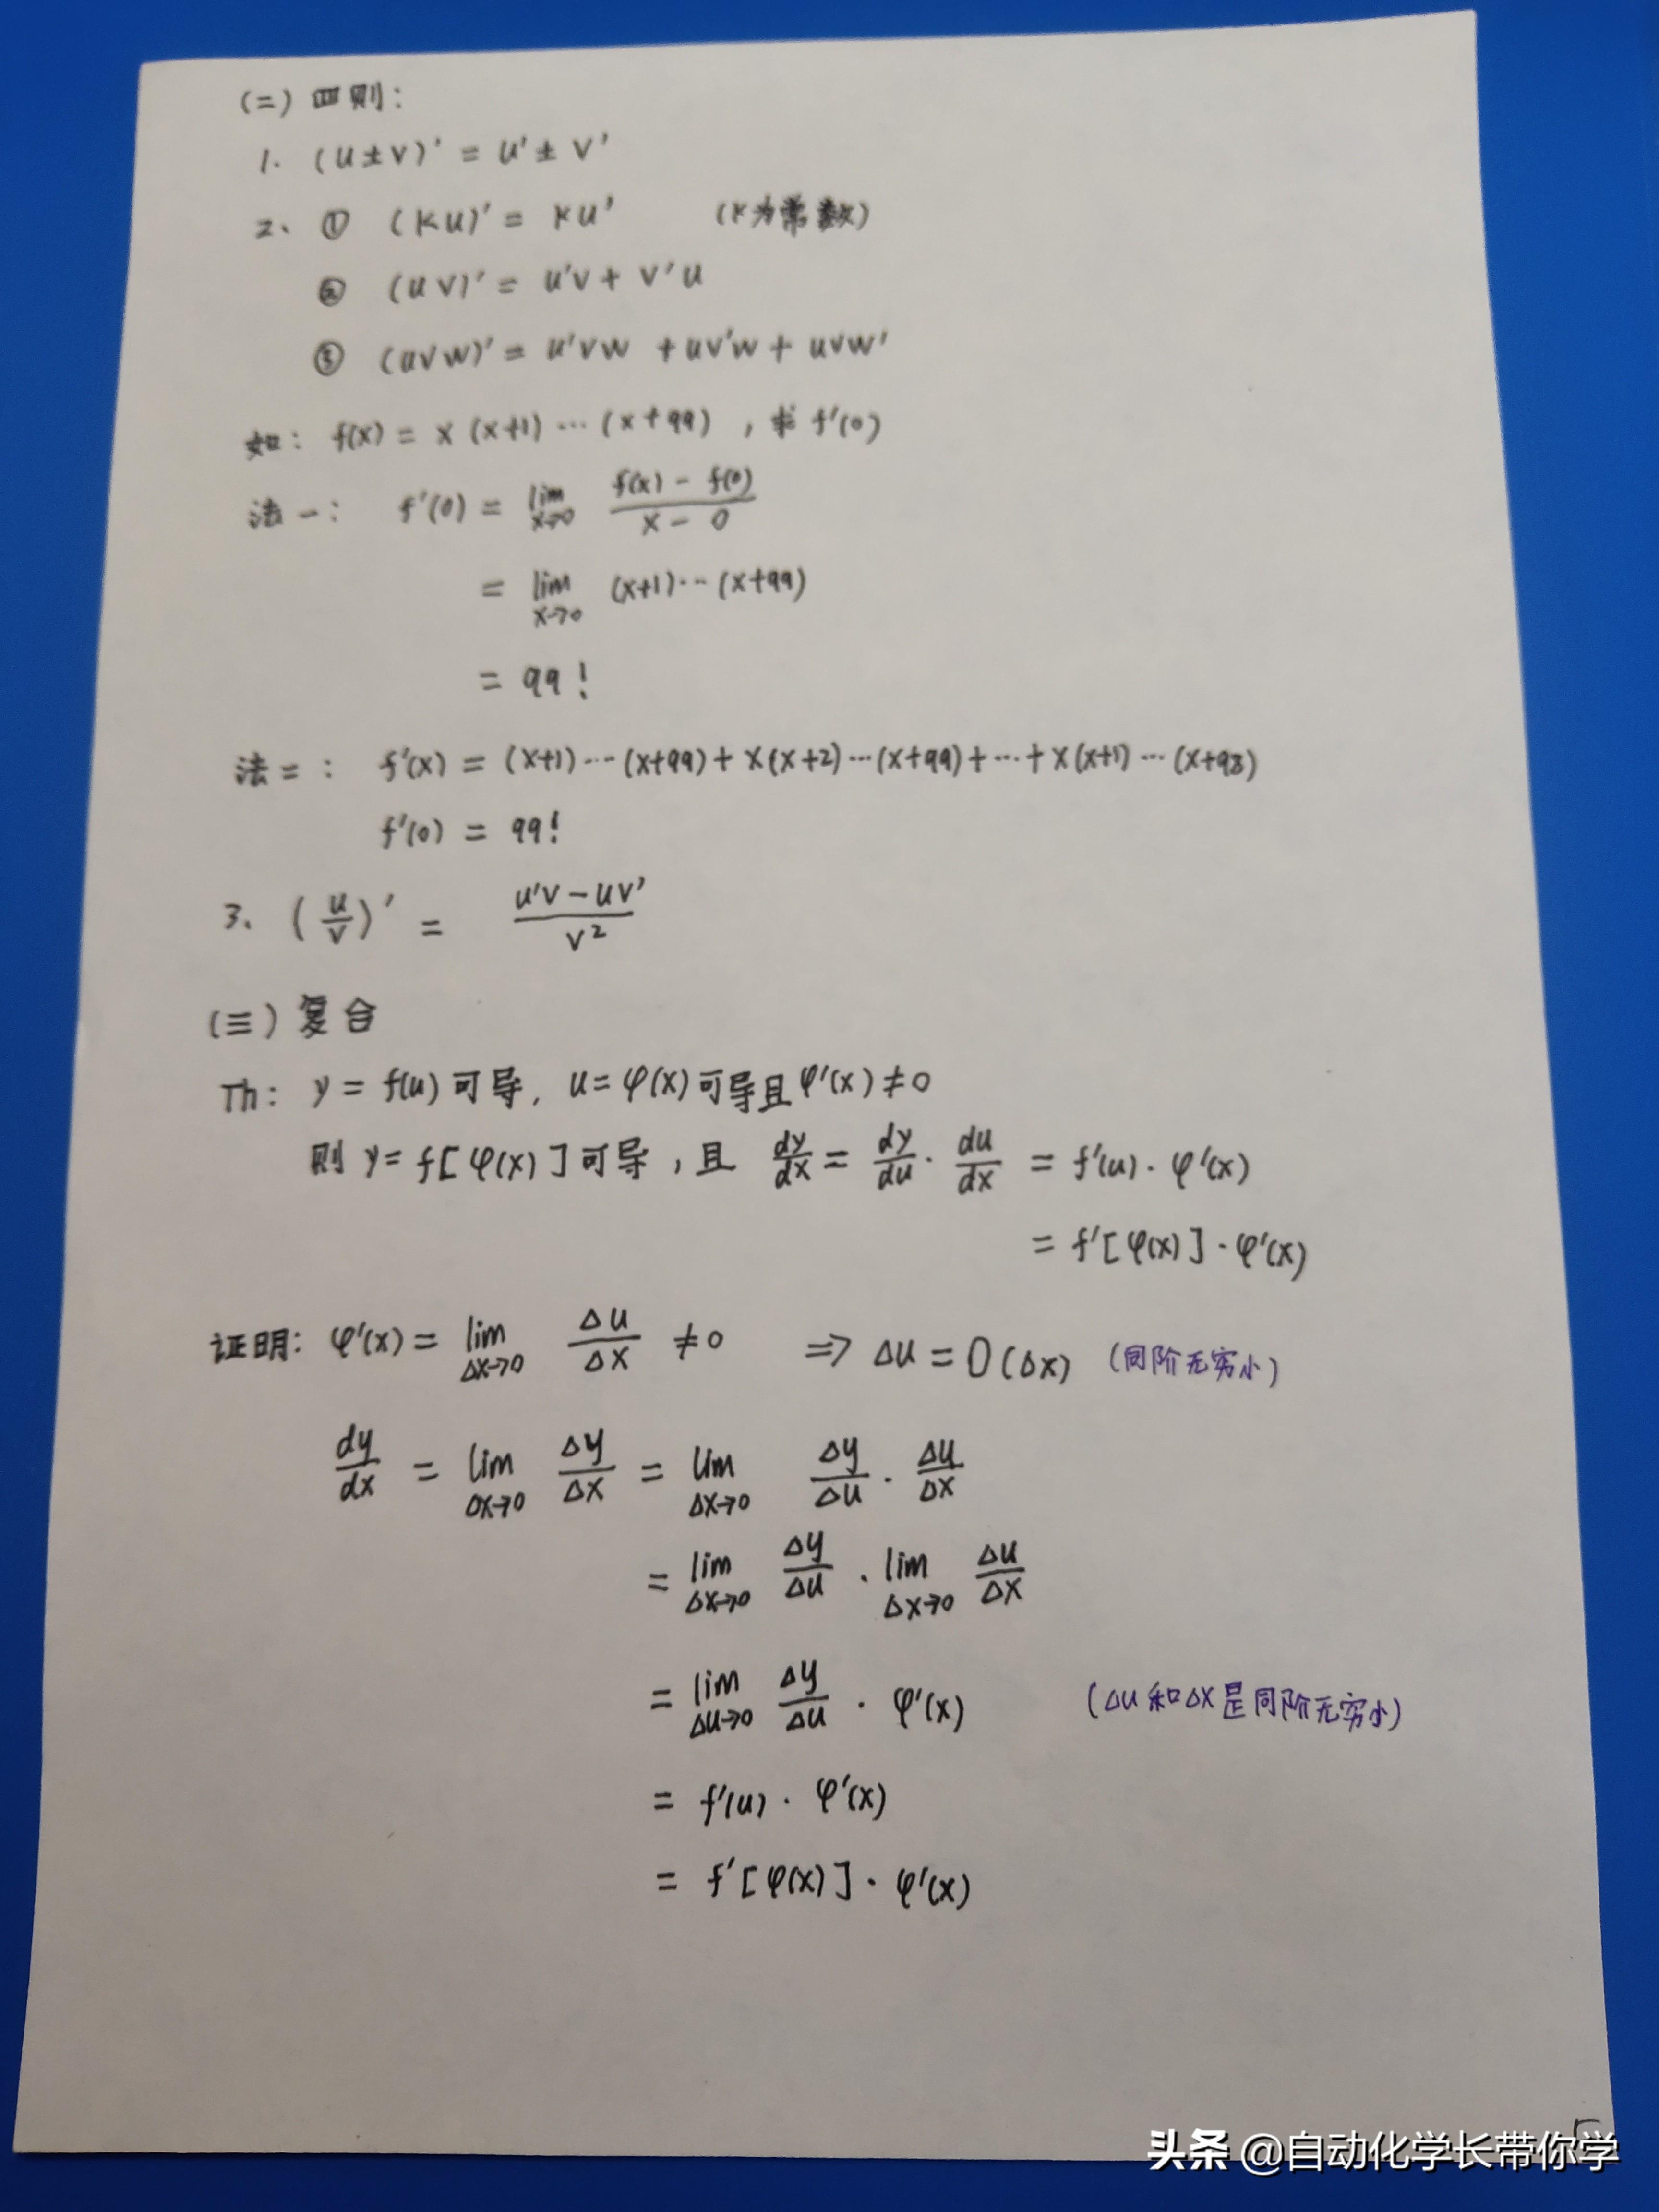 (二) 四则:
1. (u±v)' = u' ± v'
2、① (ku)' = ku' (k为常数)
② (uv)' = u'v + v'u
③ (uvw)' = u'vw + uv'w + uvw'
如: f(x) = x(x+1)···(x+99), 求 f'(0)
法一: f'(0) = lim x→0 (f(x) - f(0))/(x - 0)
= lim x→0 (x+1)···(x+99)
= 99!
法二: f'(x) = (x+1)···(x+99) + x(x+2)···(x+99) + ··· + x(x+1)···(x+98)
f'(0) = 99!
3、(u/v)' = (u'v - uv')/v²
(三) 复合
Th: y = f(u) 可导, u = φ(x) 可导且 φ'(x) ≠ 0
则 y = f[φ(x)] 可导, 且 dy/dx = dy/du · du/dx = f'(u) · φ'(x)
= f'[φ(x)] · φ'(x)
证明: φ'(x) = lim Δx→0 Δu/Δx ≠ 0 ⇒ Δu = O(Δx) (同阶无穷小)
dy/dx = lim Δx→0 Δy/Δx = lim Δx→0 Δy/Δu · Δu/Δx
= lim Δx→0 Δy/Δu · lim Δx→0 Δu/Δx
= lim Δu→0 Δy/Δu · φ'(x) (Δu和Δx是同阶无穷小)
= f'(u) · φ'(x)
= f'[φ(x)] · φ'(x)
头条 @自动化学长带你学